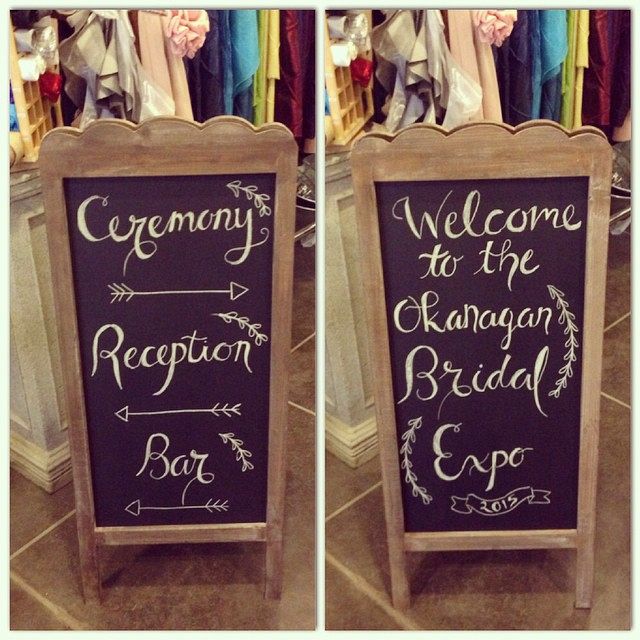 Ceremony
Reception
Bar
Welcome
to the
Okanagan
Bridal
Expo
2015